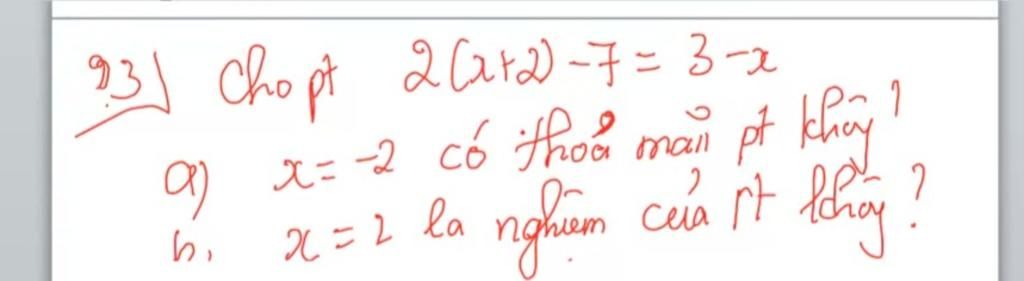 ?3) Cho pt 2(x+2) - 7 = 3 - x
a) x = -2 có thoả mãn pt không?
b, x = 2 la nghiệm của pt không?